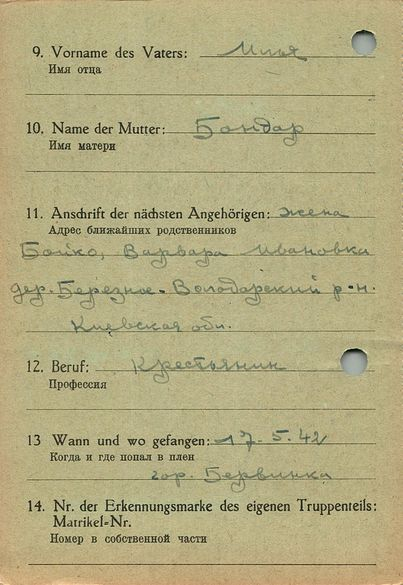 9. Vorname des Vaters: Илья
Имя отца
10. Name der Mutter: Бондар
Имя матери
11. Anschrift der nächsten Angehörigen: жена
Адрес ближайших родственников
Бойко, Варвара Ивановка
дер. Березное - Володарский р-н.
Киевская обл.
12. Beruf: Крестьяник
Профессия
13 Wann und wo gefangen: 17. 5. 42
Когда и где попал в плен
гор. Бервинка
14. Nr. der Erkennungsmarke des eigenen Truppenteils:
Matrikel-Nr.
Номер в собственной части